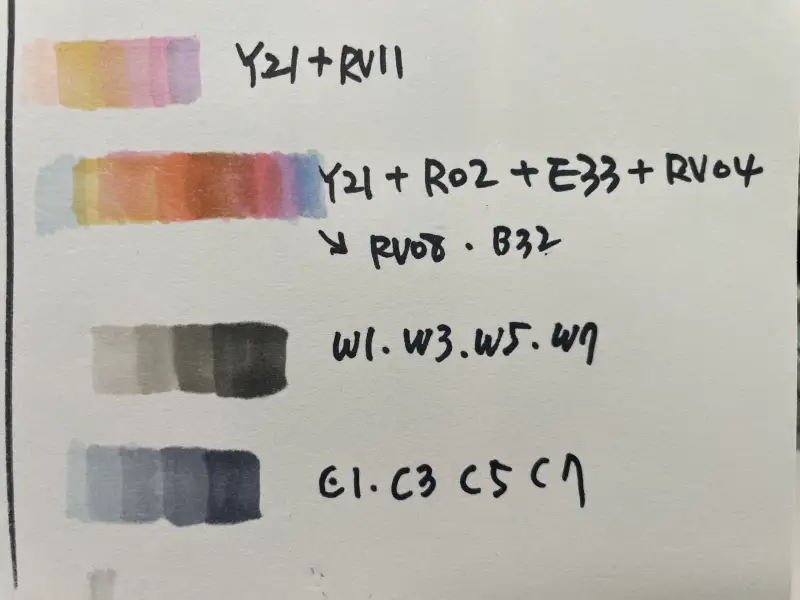 Y21+RV11
Y21+R02+E33+RV04
↘ RV08 · B32
W1. W3. W5. W7
C1. C3 C5 C7